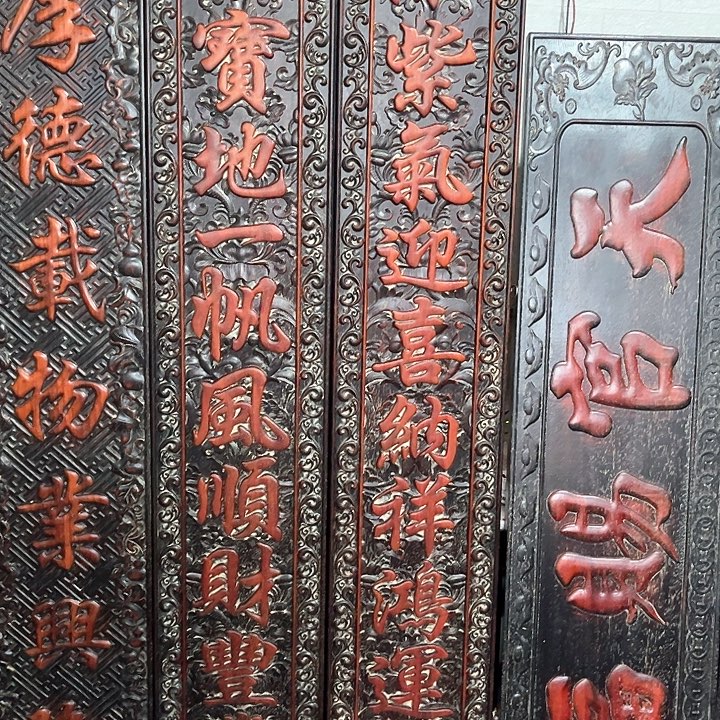 厚德載物業興
寶地一帆風順財豐
紫氣迎喜納祥鴻運
天官賜